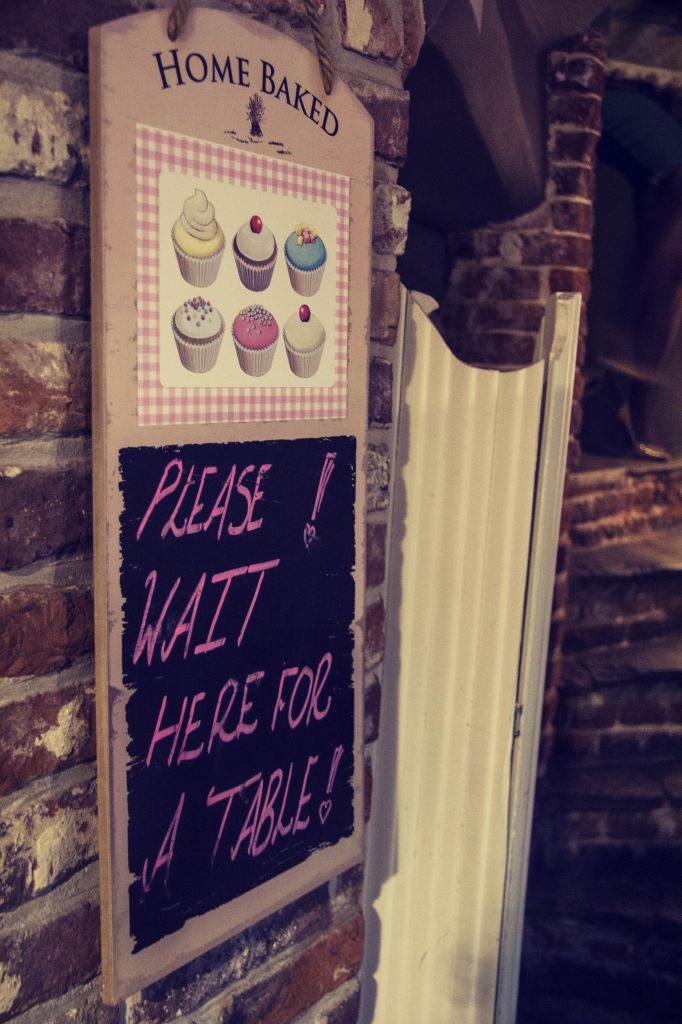 HOME BAKED
PLEASE !
WAIT
HERE FOR
A TABLE!